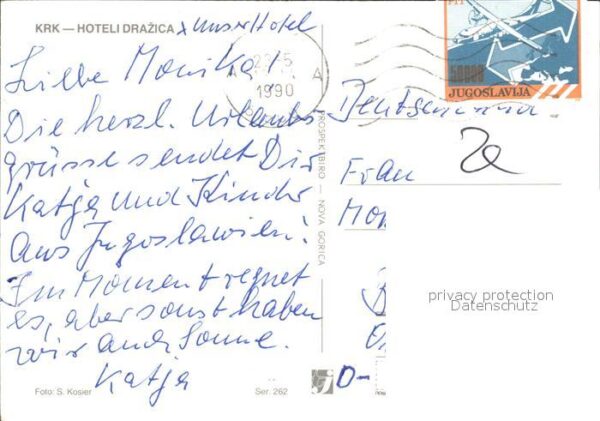 KRK — HOTELI DRAŽICA x unser Hotel
Liebe Monika!
Die herzl. Urlaubs
grüsse sendet Dir
Katja und Kinder
aus Jugoslawien!
Im Moment regnet
es, aber sonst haben
wir auch Sonne.
Katja
Foto: S. Kosier
Ser. 262
PROSPEK BIRO — NOVA GORICA
1990
PTT
JUGOSLAVIJA
Deutschland
Frau
Mon
D-
privacy protection
Datenschutz